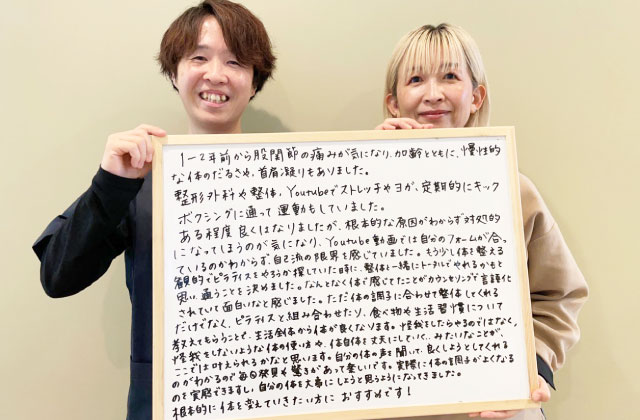 1～2年前から股関節の痛みが気になり、加齢とともに、慢性的
な体のだるさや、首肩凝りもありました。
整形外科や整体、Youtubeでストレッチやヨガ、定期的にキック
ボクシングに通って運動もしていました。
ある程度良くはなりましたが、根本的な原因がわからず対処的
になってしまうのが気になり、Youtube動画では自分のフォームが合っ
ているのかわからず、自己流の限界を感じていました。もう少し体を整える
観的でピラティスをやろうか探していた時に、整体と一緒にトータルでやれるかもと
思い、通うことを決めました。なんとなく体で感じてたことがカウンセリングで言語化
されていて面白いなと感じました。ただ体の調子に合わせて整体してくれる
だけでなく、ピラティスと組み合わせたり、食べ物や生活習慣について
教えてもらうことで、生活全体から体が良くなります。怪我をしたらやるのではなく、
怪我をしないような体の使い方や、体自体を丈夫にしていく、みたいなことが、
ここでは叶えられるかなと思います。自分の体の声を聞いて、良くしようとしてくれる
のがわかるので毎回発見や驚きがあって楽しいです。実際に体の調子がよくなる
のを実感できますし、自分の体を大事にしようと思うようになってきました。
根本的に体を変えていきたい方におすすめです！